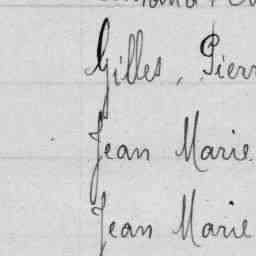 Gilles, Pierr
Jean Marie
Jean Marie